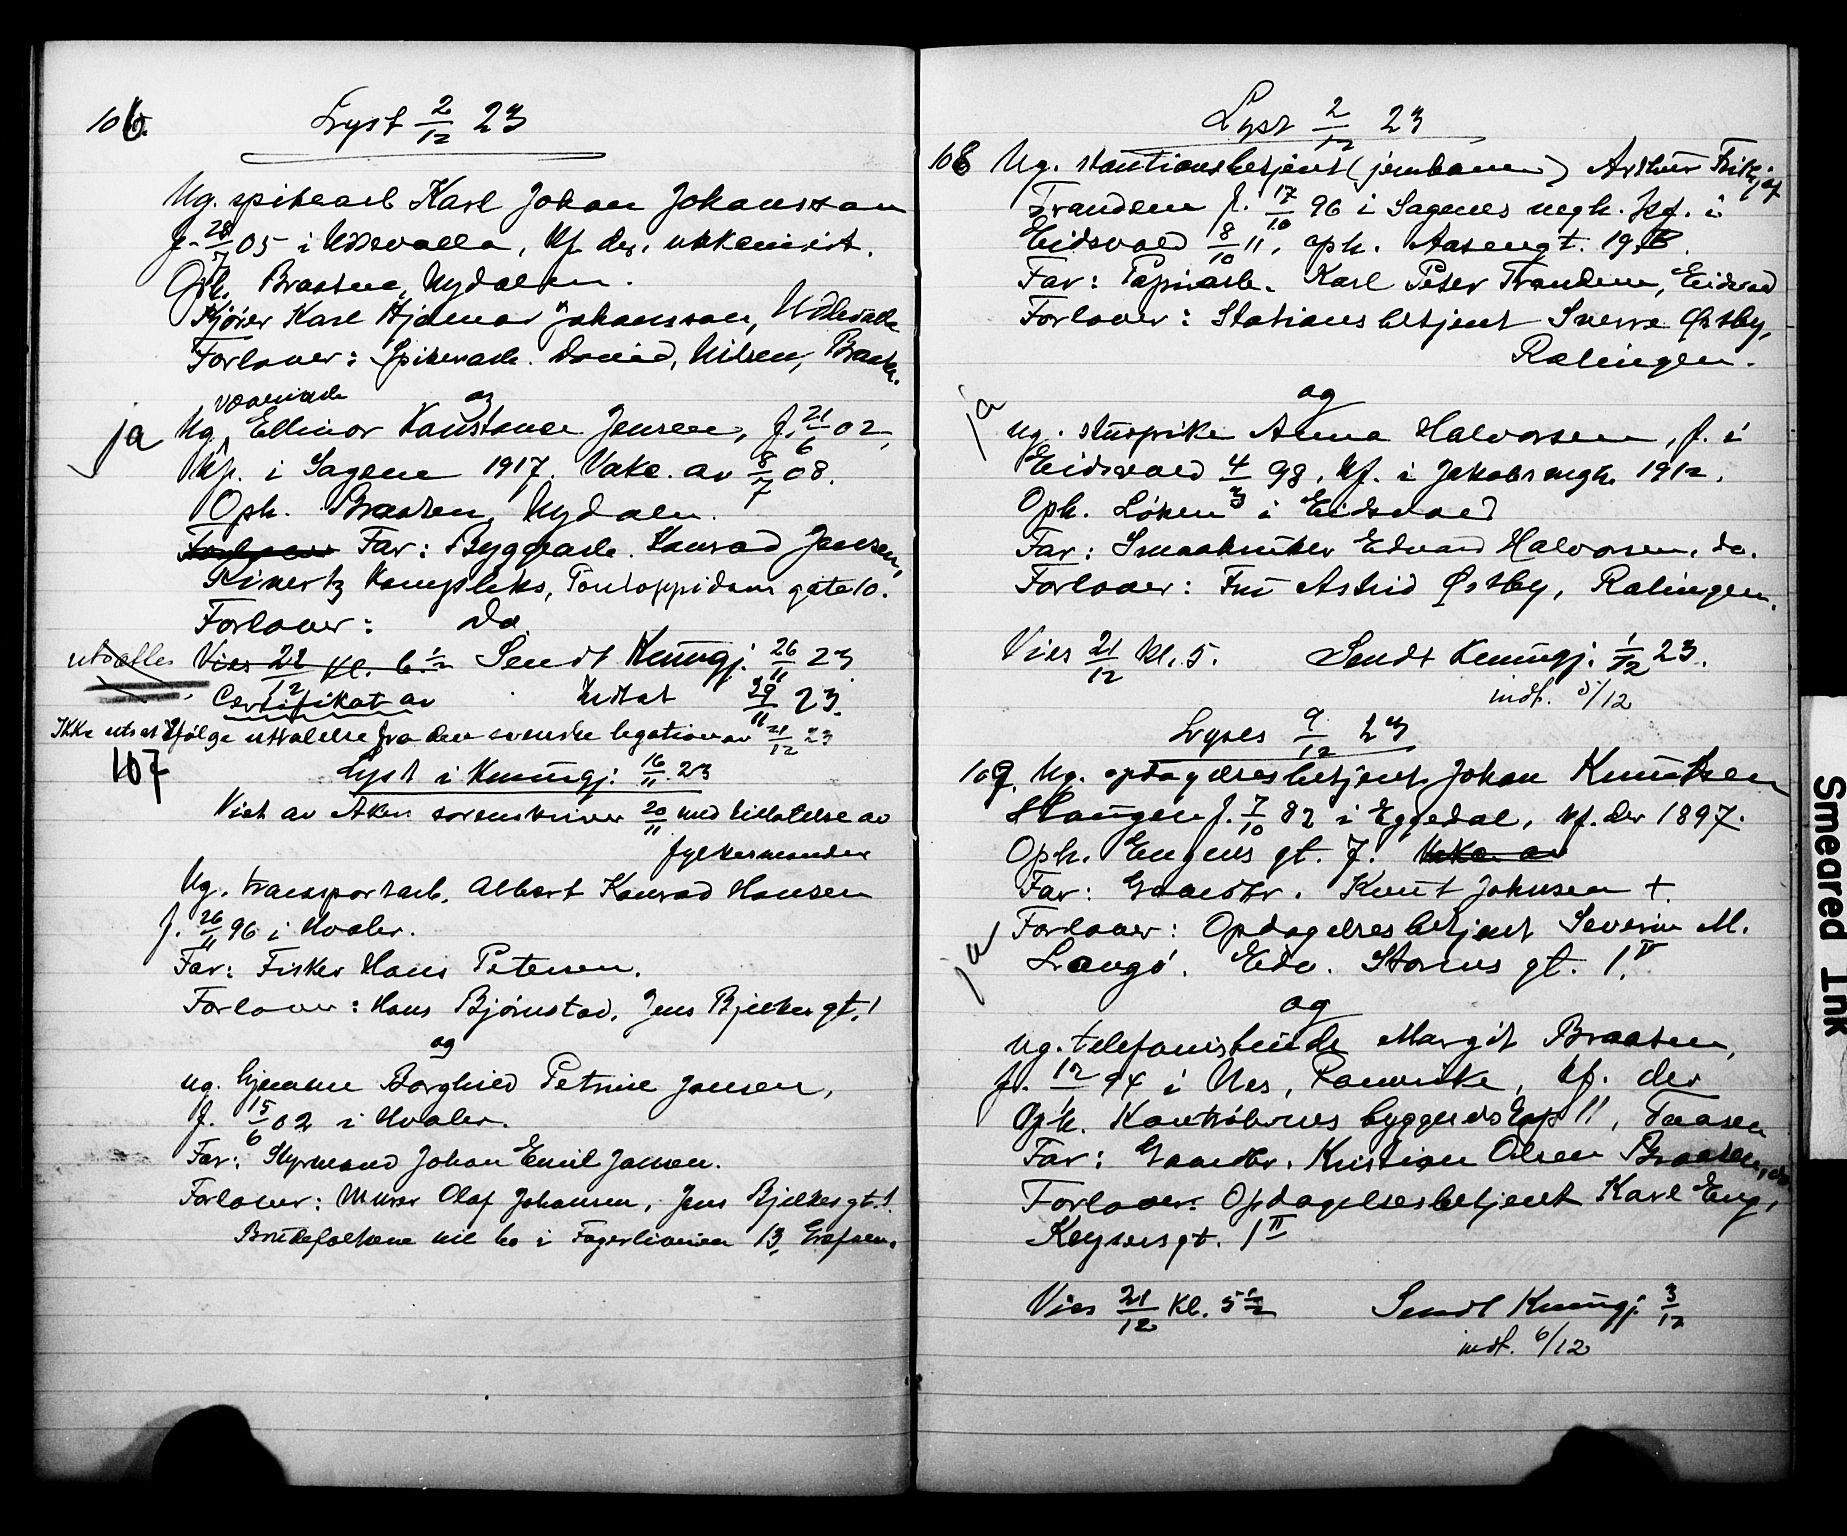 106. Lyst 2/12 23
Ug. spikerarb Karl Johan Johansson
f. 28/7 05 i Uddevalla, Kf der, ukkemist.
Oph. Braaten, Nydalen.
Kjører Karl Hjalmar Johansson, Uddevalla
Forlover: Spikerarb. David Nilsen, Braat.
væverarb og
ja Ug. Ellinor Konstance Jensen, f. 21/6 02,
Kf. i Sagene 1917. Vakc. av 8/7 08.
Oph. Braaten, Nydalen.
Forlover Far: Byggearb. Konrad Jensen,
Rivertz Kompleks, Pontoppidans gate 10.
Forlover: do
utsættes Vies 22/12 Kl. 6 1/2 Sendt Kunngj. 26/11 23
Certifikat av Indtat 29/11 23.
Ikke utstæd ifølge uttalelse fra den svenske legation av 21/12 23
107 Lyst i Kunngj. 16/11 23
Viet av Aker sorenskriver 20/11 med tillatelse av
fylkesmanden
Ug. transportarb. Albert Konrad Hansen
f. 26/11 96 i Hvaler.
Far: Fisker Hans Petersen.
Forlover: Hans Bjørnstad, Jens Bjelkes gt. 1
og
ug. hjemme Borghild Petrine Jansen,
f. 15/6 02 i Hvaler.
Far: Styrmand Johan Emil Jansen.
Forlover: Murer Olaf Johansen, Jens Bjelkes gt. 1.
Brudefolkene vil bo i Fagerliveien 13, Grefsen.
Lyst 2/12 23
108 Ug. stationsbetjent (jernbanen) Arthur Fritjof
Tranden f. 17/10 96 i Sagenes megh. Kf. i
Eidsvold 8/10 11, oph. Aasengt. 19
Far: Papirarb. Karl Peter Tranden, Eidsvold
Forlover: Stationsbetjent Sverre Østby,
Rælingen.
og
ja ug. huspike Anna Halvorsen, f. i
Eidsvold 4/3 98, Kf. i Jakobs mgh. 1912.
Oph. Løken i Eidsvold
Far: Smaabruker Edvard Halvorsen, do.
Forlover: Fru Astrid Østby, Rælingen.
Vies 21/12 Kl. 5. Sendt Kunngj. 1/12 23.
indt. 5/12
Lyses 9/12 23
109. Ug. opdagelsesbetjent Johan Knutsen
Haugen f. 7/10 82 i Eggedal, Kf. der 1897.
Oph. Engens gt. 7. Vakc. av
Far: Gaardbr. Knut Johnsen +.
ja Forlover: Opdagelsesbetjent Severin M.
Langø. Edv. Storms gt. 1 IV
og
ug. telefonistinde Margit Braaten,
f. 12/1 94 i Nes, Romerike, Kf. der
Oph. Kontrolørenes byggeselskap 11, Taasen
Far: Gaardbr. Kristian Olsen Braaten, do
Forlover: Opdagelsesbetjent Karl Eng,
Keysersgt. 1 II
Vies 21/12 Kl. 5 1/2 Sendt Kunngj. 3/12
indt. 6/12
Smeared Ink